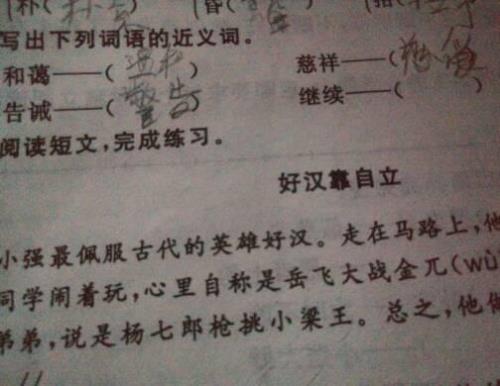 朴( 昏( 招(
写出下列词语的近义词。
和蔼——(温和) 慈祥——(慈
告诫——(警告) 继续——(
阅读短文,完成练习。
好汉靠自立
小强最佩服古代的英雄好汉。走在马路上,他
同学闹着玩,心里自称是岳飞大战金兀(wù
弟弟,说是杨七郎枪挑小梁王。总之,他